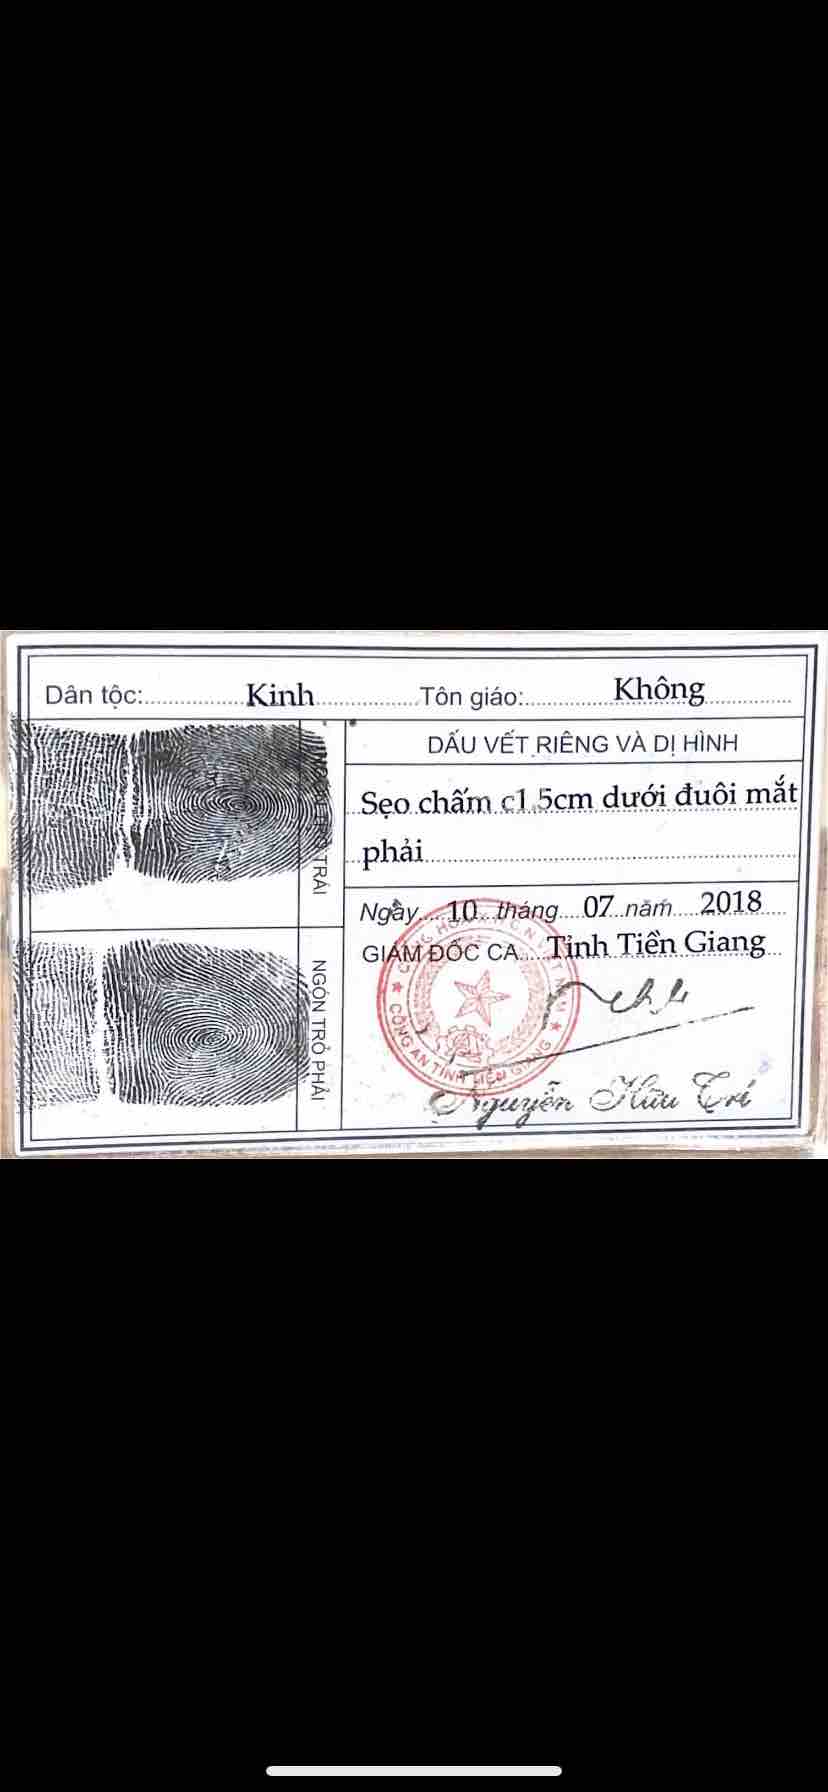 Dân tộc: Kinh Tôn giáo: Không
DẤU VẾT RIÊNG VÀ DỊ HÌNH
Sẹo chấm c1.5cm dưới đuôi mắt
phải
NGÓN TRỎ TRÁI
Ngày 10 tháng 07 năm 2018
GIÁM ĐỐC CA Tỉnh Tiền Giang
NGÓN TRỎ PHẢI
CỘNG HÒA VIỆT NAM
CÔNG AN TỈNH TIỀN GIANG
Nguyễn Hữu Trí